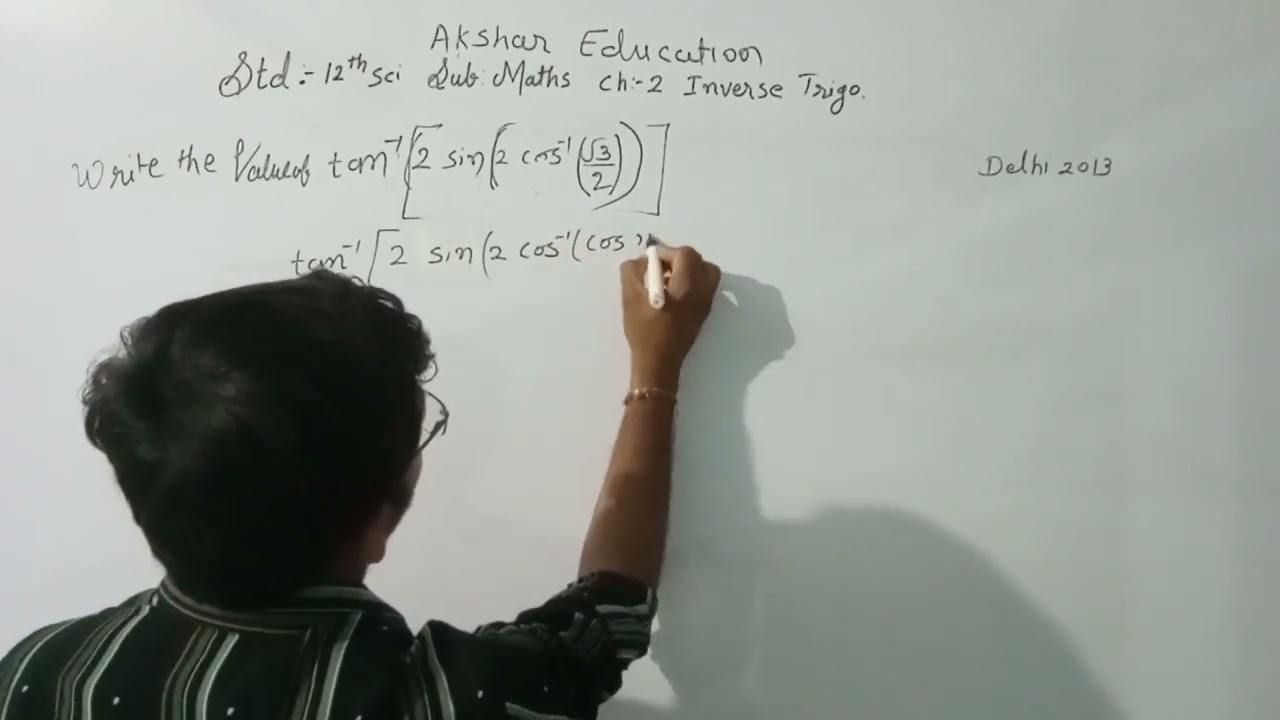 Akshar Education
Std:- 12th sci Sub: Maths Ch:-2 Inverse Trigo.
Write the Value of tan⁻¹[2 sin(2 cos⁻¹(√3/2))]
Delhi 2013
tan⁻¹[2 sin(2 cos⁻¹(cos